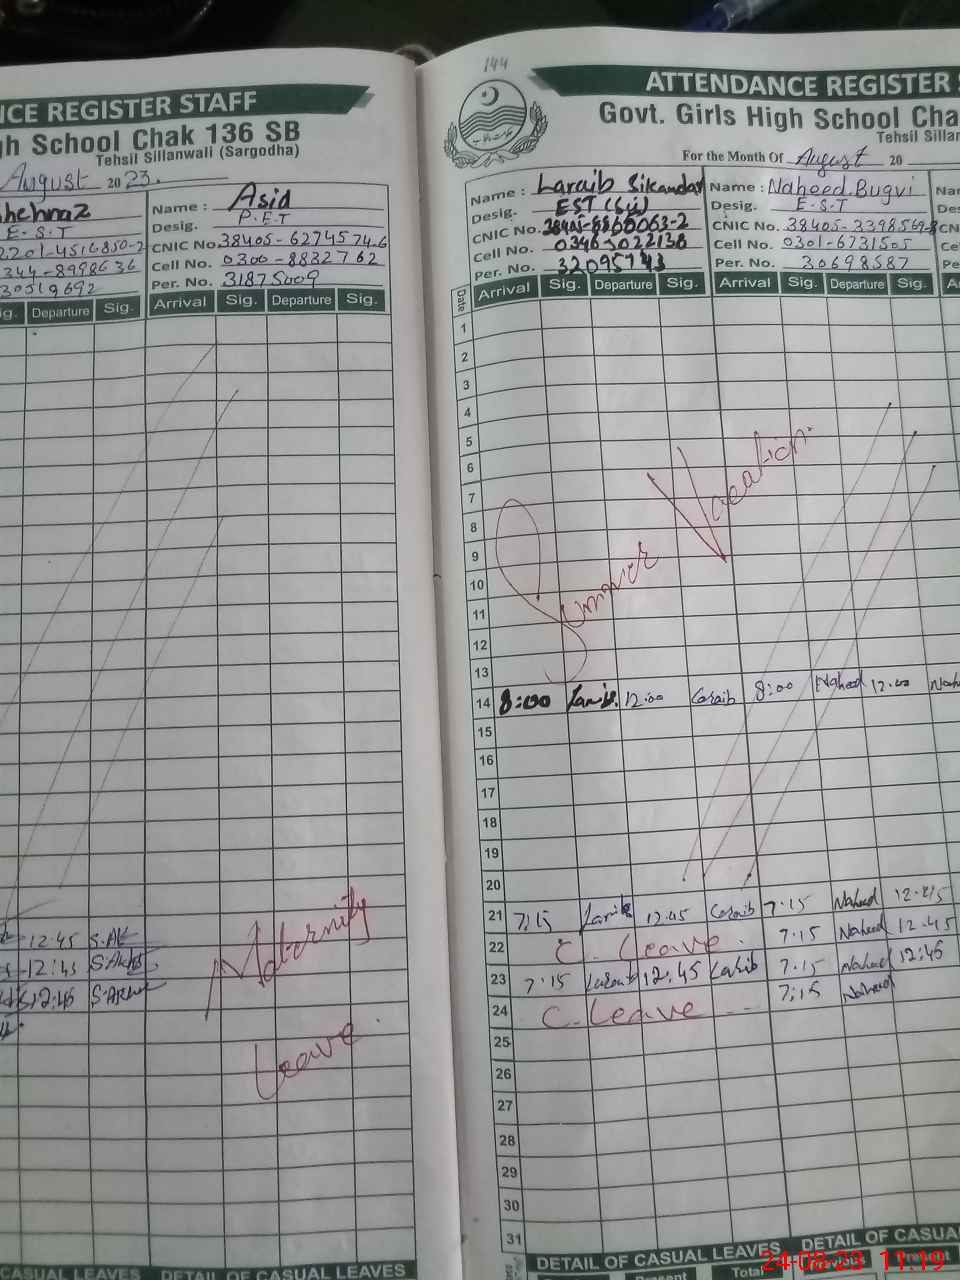 NCE REGISTER STAFF
gh School Chak 136 SB
Tehsil Sillanwali (Sargodha)
August 2023.
hehnaz
E.S.T
2201-4516850-2
344-8998636
30519692
Name: Asia
P.E.T
Desig.
CNIC No. 38405-6274574-6
Cell No. 0300-8832762
Per. No. 31875009
ig. Departure Sig. Arrival Sig. Departure Sig.
12:45 S.Ak
12:45
12:45
Maternity
Leave.
CASUAL LEAVES DETAIL OF CASUAL LEAVES
144
ATTENDANCE REGISTER S
Govt. Girls High School Cha
Tehsil Sillan
For the Month Of August 20
Name: Laraib Sikandar
Desig. EST
CNIC No.
Cell No.
Per. No. 32095743
Name: Naheed Bugvi
Desig. E.S.T
CNIC No. 38405-3398569-8
Cell No. 0301-6731505
Per. No. 30698587
Nam
Desi
CN
Ce
Pe
Date Arrival Sig. Departure Sig. Arrival Sig. Departure Sig. A
1
2
3
4
5
6
7
8
9
10
11
12
13
Summer Vacation
14 8:00 Laraib 12:00 Laraib 8:00 Naheed 12:00 Nahe
15
16
17
18
19
20
21 7:15 Laraib 12.45 Laraib 7:15 Naheed 12.45
22 C. Leave 7:15 Naheed 12.45
23 7:15 Laraib 12.45 Laraib 7:15 Naheed 12:45
24 C. Leave 7:15 Naheed
25
26
27
28
29
30
31
DETAIL OF CASUAL LEAVES DETAIL OF CASUAL
Present Total Previous Present
24-08-23 11:19